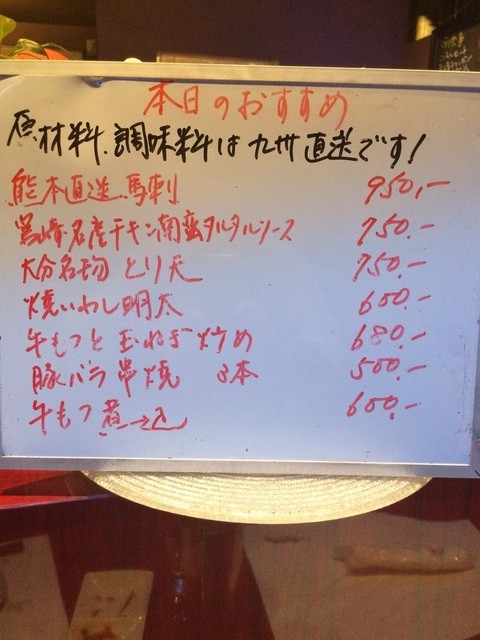 本日のおすすめ
原材料、調味料は九州直送です!
熊本直送 馬刺 950,-
宮崎名産チキン南蛮タルタルソース 750.-
大分名物 とり天 750.-
焼いわし明太 600.-
牛もつと玉ねぎ炒め 680.-
豚バラ串焼 3本 500.-
牛もつ煮込 600.-